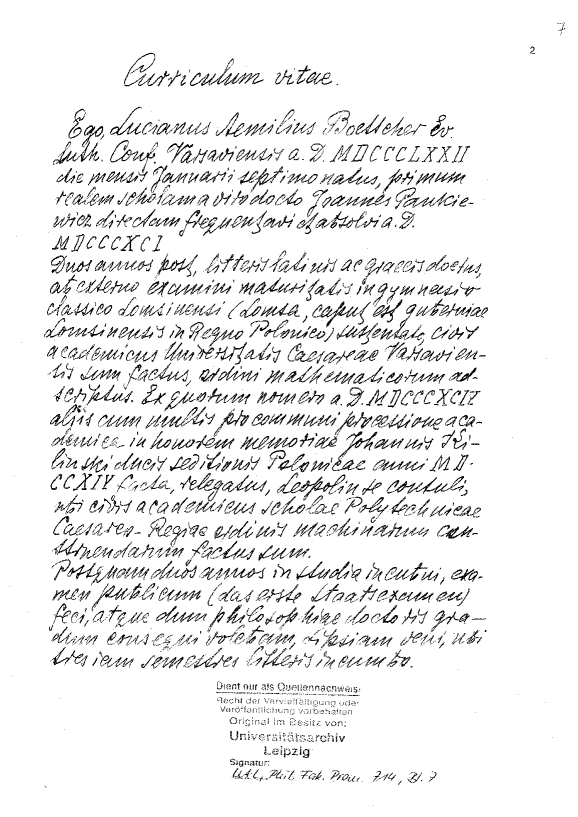 7
2
Curriculum vitae.
Ego, Lucianus Aemilius Boettcher Ev.
Luth. Conf. Varsaviensis a. D. MDCCCLXXII
die mensis Januarii septimo natus, primum
realem scholam a viro docto Joannes Pankie-
wicz directam frequentavi et absolvi a. D.
MDCCCXCI
Duos annos post, litteris latinis ac graecis doctus,
ab externo examini maturitatis in gymnasio
classico Lomsinensi (Lomsa, caput est guberniae
Lomsinensis in Regno Polonico) sustentato, civis
academicus Universitatis Caesareae Varsavien-
sis sum factus, ordini mathematicorum ad-
scriptus. Ex quorum nomero a. D. MDCCCXCIV
aliis cum multis pro communi processione aca-
demica in honorem memoriae Johannis Ki-
linski ducis seditionis Polonicae anni MD-
CCXIV facta, relegatus, Leopolin se contuli,
ubi civis academicus scholae Polytechnicae
Caesareo-Regiae ordinis machinarum con-
struendarum factus sum.
Postquam duos annos in studia incubui, exa-
men publicum (das erste Staatsexamen)
feci, atque dum philosophiae doctoris gra-
dum consequi volebam, Lipsiam veni, ubi
tres iam semestres litteris incumbo.
Dient nur als Quellennachweis!
Recht der Vervielfältigung oder
Veröffentlichung vorbehalten
Original im Besitz von:
Universitätsarchiv
Leipzig
Signatur:
UAL, Phil. Fak. Prom. 714, Bl. 7